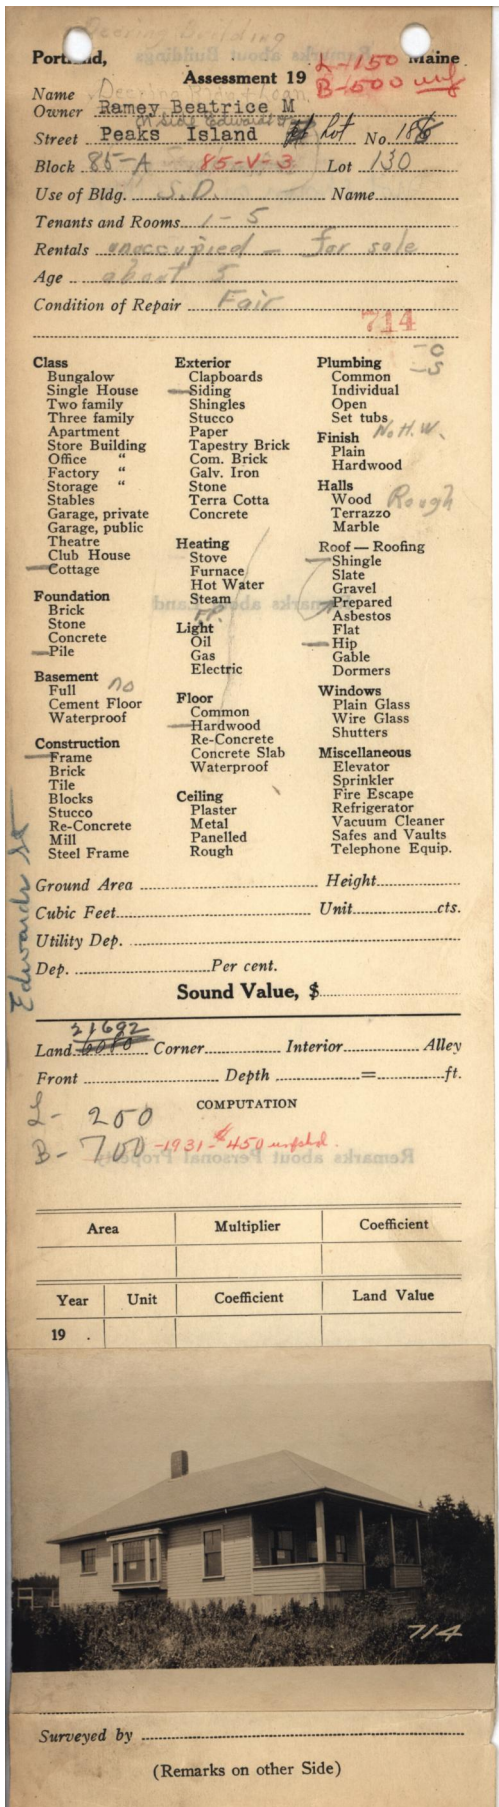 Deering Building
Portland, Maine
L-150
Assessment 19
B-500 unf
Name Deering Bldg & Loan
Owner Ramey Beatrice M
N side Edward St
Street Peaks Island Lot No. 186
Block 85-A 85-V-3 Lot 130
Use of Bldg. S.D. Name
Tenants and Rooms 1-5
Rentals unoccupied - for sale
Age about 5
Condition of Repair Fair
714
Class
Bungalow
Single House
Two family
Three family
Apartment
Store Building
Office "
Factory "
Storage "
Stables
Garage, private
Garage, public
Theatre
Club House
Cottage
Foundation
Brick
Stone
Concrete
Pile
Basement
Full no
Cement Floor
Waterproof
Construction
Frame
Brick
Tile
Blocks
Stucco
Re-Concrete
Mill
Steel Frame
Exterior
Clapboards
Siding
Shingles
Stucco
Paper
Tapestry Brick
Com. Brick
Galv. Iron
Stone
Terra Cotta
Concrete
Heating
Stove
Furnace
Hot Water
Steam
F.P.
Light
Oil
Gas
Electric
Floor
Common
Hardwood
Re-Concrete
Concrete Slab
Waterproof
Ceiling
Plaster
Metal
Panelled
Rough
Plumbing -C
Common -S
Individual
Open
Set tubs No H.W.
Finish
Plain
Hardwood
Halls
Wood Rough
Terrazzo
Marble
Roof — Roofing
Shingle
Slate
Gravel
Prepared
Asbestos
Flat
Hip
Gable
Dormers
Windows
Plain Glass
Wire Glass
Shutters
Miscellaneous
Elevator
Sprinkler
Fire Escape
Refrigerator
Vacuum Cleaner
Safes and Vaults
Telephone Equip.
Edwards St
Ground Area Height
Cubic Feet Unit cts.
Utility Dep.
Dep. Per cent.
Sound Value, $
21692
Land 6080 Corner Interior Alley
Front Depth = ft.
COMPUTATION
L- 250
B- 700 -1931-$450 unfshd.
Remarks about Personal Property
Area Multiplier Coefficient
Year Unit Coefficient Land Value
19 .
714
Surveyed by
(Remarks on other Side)